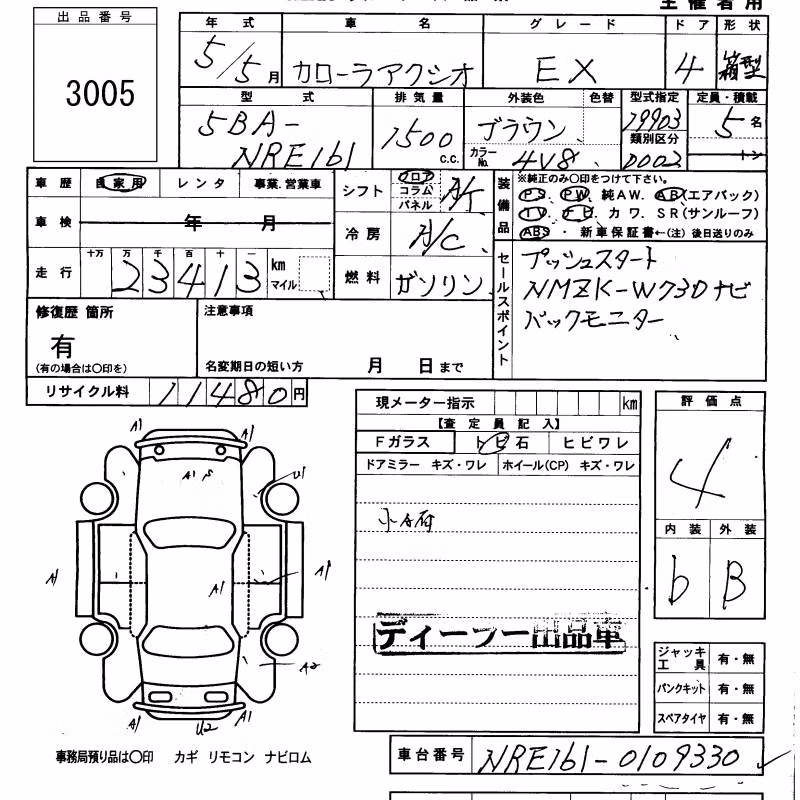 出品番号
3005
年式 車名 グレード ドア 形状
5/5月 カローラアクシオ EX 4 箱型
型式 排気量 外装色 色替 型式指定 定員・積載
5BA-NRE161 1500c.c. ブラウン 19903 5名
カラーNo. 4V8 類別区分 0002 トン
車歴 自家用 レンタ 事業.営業車
シフト フロア コラム パネル A/T
車検 年 月
冷房 A/C
走行 十万 万 千 百 十 一
23413 km マイル
燃料 ガソリン
装備品 ※純正のみ〇印をつけて下さい。
PS、PW、純AW、AB(エアバック)
TV、ナビ カワ、SR(サンルーフ)
ABS・新車保証書←(注)後日送りのみ
セールスポイント
プッシュスタート
NMZK-W73Dナビ
バックモニター
修復歴 箇所 注意事項
有
(有の場合は〇印を) 名変期日の短い方 月 日まで
リサイクル料 11480円
現メーター指示 km
【査定員記入】
Fガラス トビ石 ヒビワレ
ドアミラー キズ・ワレ ホイール(CP) キズ・ワレ
ディーラー出品車
評価点
4
内装 外装
b B
ジャッキ工具 有・無
パンクキット 有・無
スペアタイヤ 有・無
A1 A1
A1 U1
A1 A1 A1
A2
A1 U2 A1
事務局預り品は〇印 カギ リモコン ナビロム
車台番号 NRE161-0109330